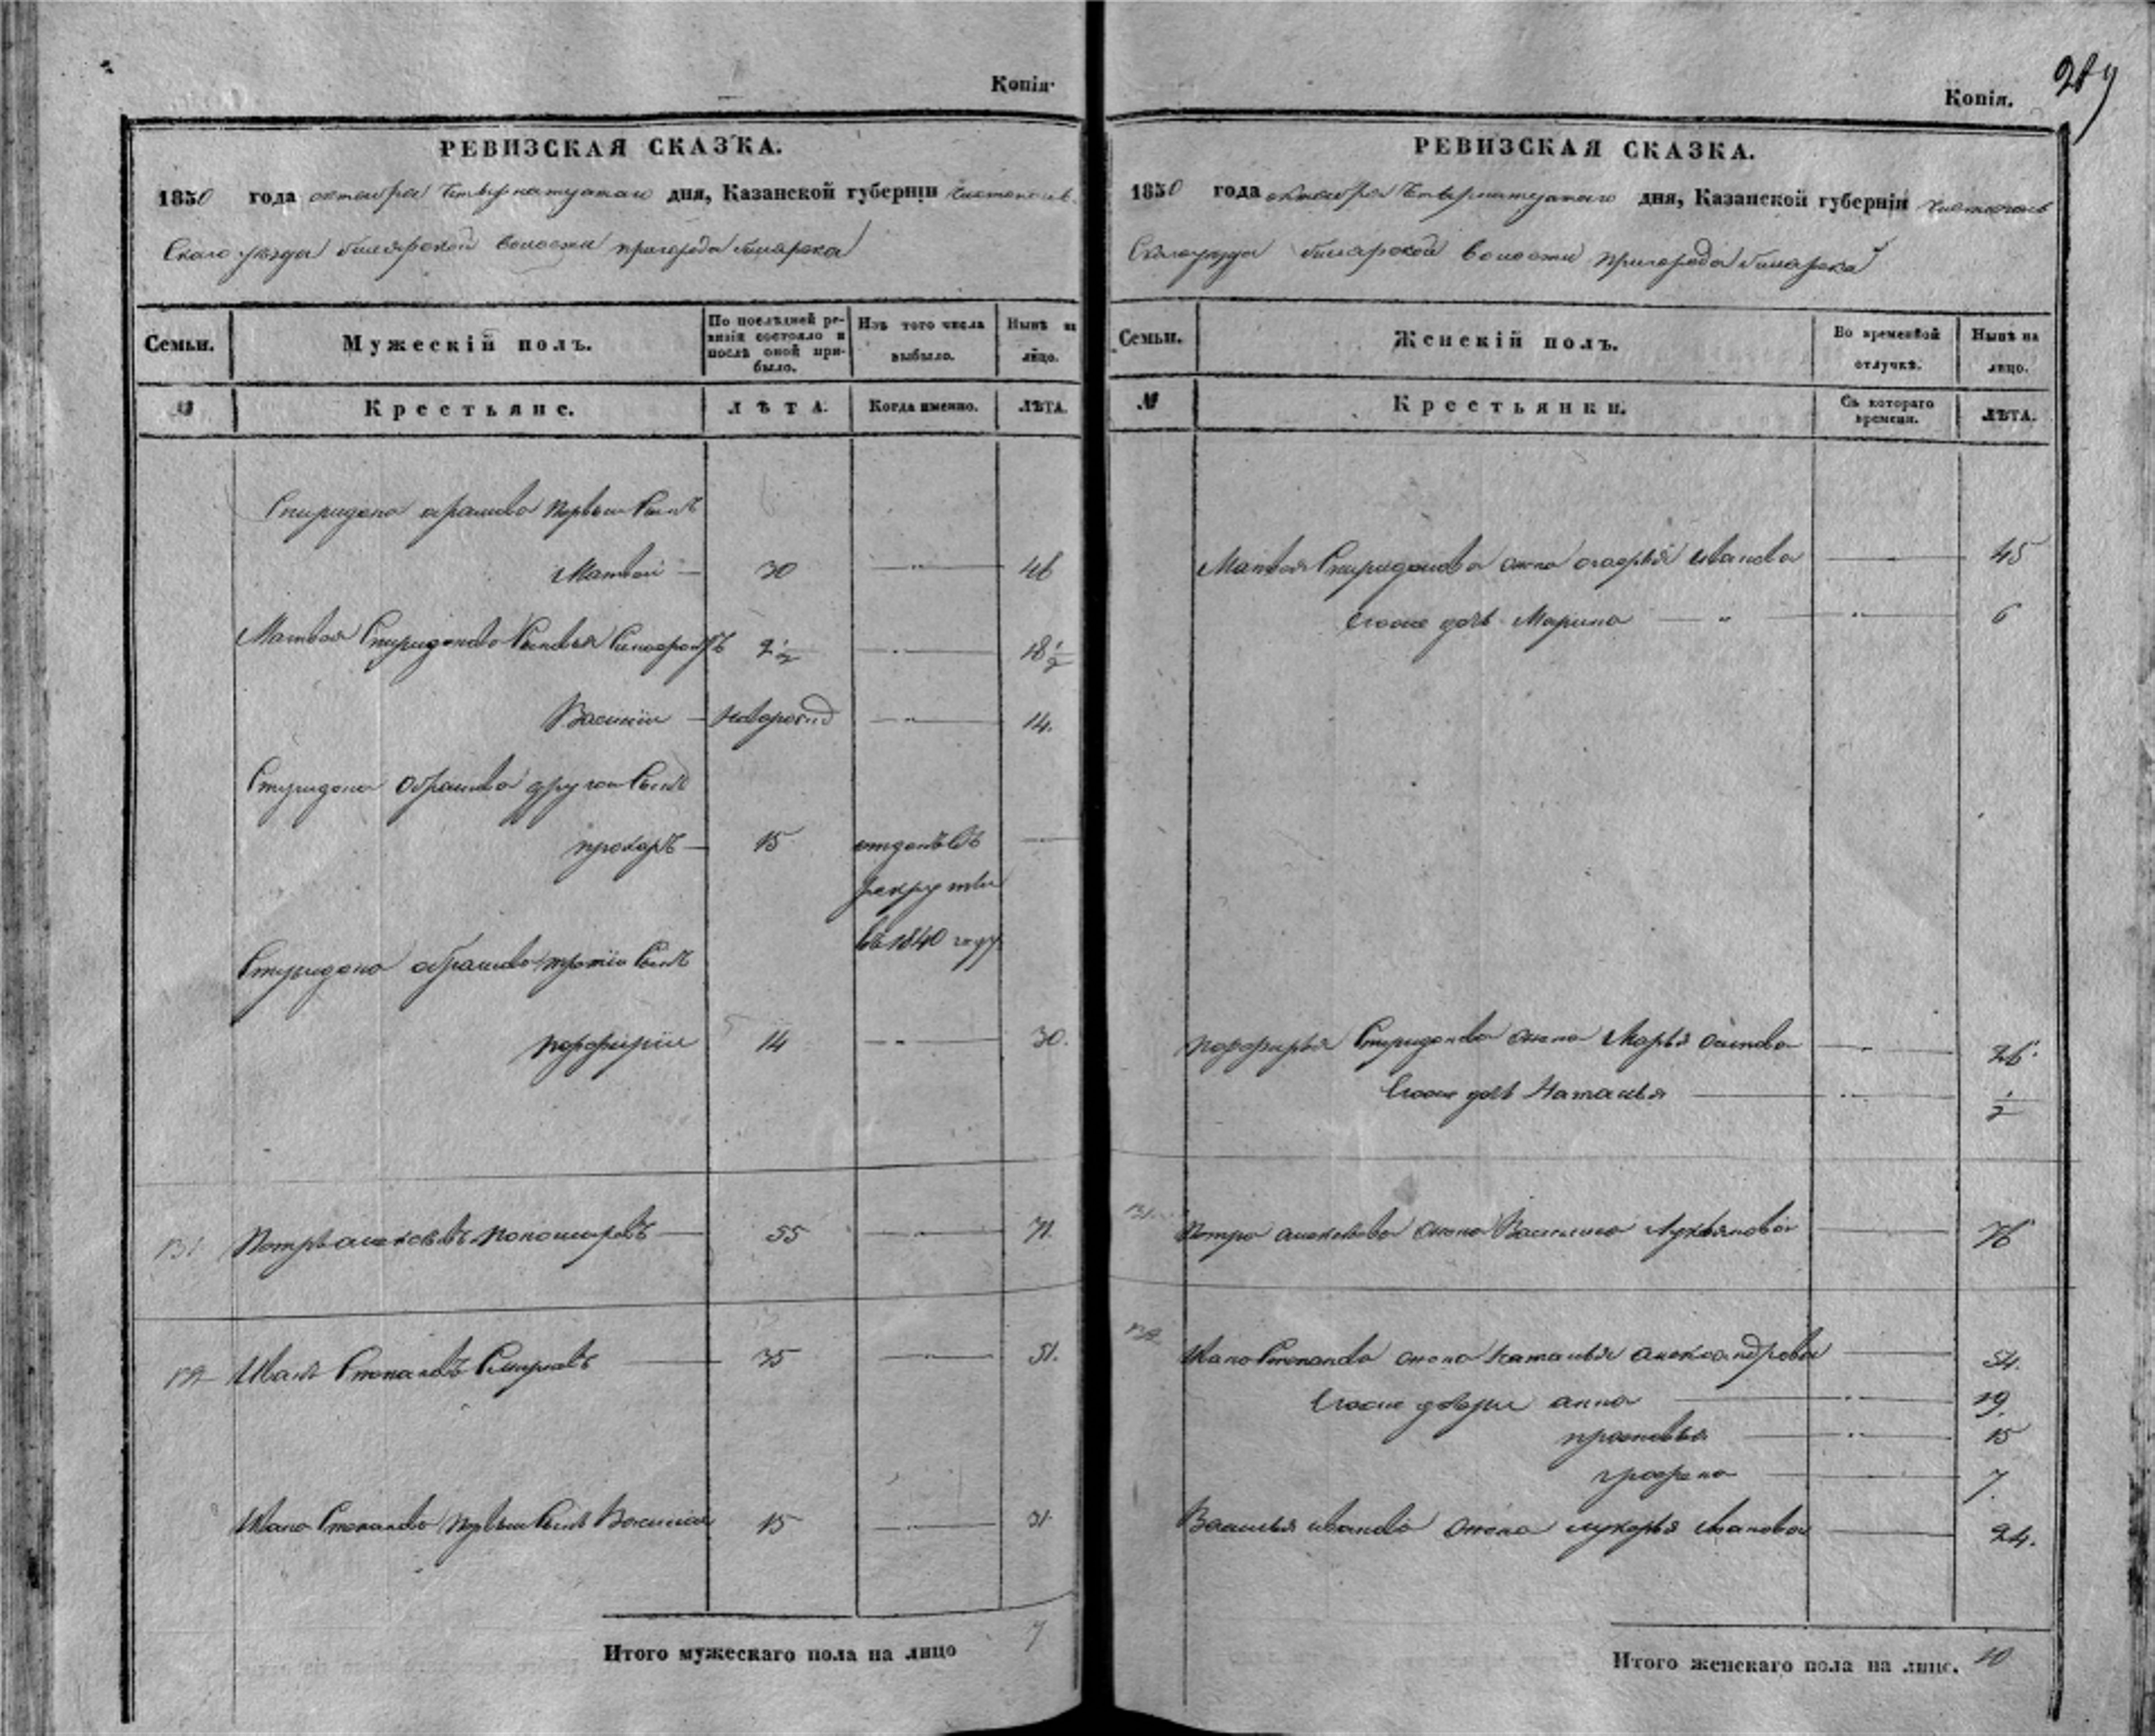 Копія
РЕВИЗСКАЯ СКАЗКА.
1850 года октября Четырнатцатаго дня, Казанской губерніи Чистополь
Скаго уезда билярской волости пригорода билярска
Семьи. Мужескій полъ. По послѣдней ревизіи состояло и послѣ оной прибыло. Изъ того числа выбыло. Нынѣ на лицо.
№ Крестьяне. ЛѢТА. Когда именно. ЛѢТА.
Спиридона первый Сынъ
Матвей 30 46
Матвея Спиридонова Сыновья 2 1/2 18 1/2
Василий новорожд 14.
Спиридона другой Сынъ
прохоръ 15 отданъ въ
рекруты
въ 1840 году
Спиридона третий Сынъ
порфирий 14 30.
131 Петръ алексѣевъ 55 71
132 Иванъ Степановъ Смирновъ 35 51.
Ивана Степанова первый Сынъ Василий 15 31
Итого мужескаго пола на лицо 7
289
Копія.
РЕВИЗСКАЯ СКАЗКА.
1850 года октября Четырнатцатаго дня, Казанской губерніи Чистополь
Скаго уезда билярской волости пригорода билярска
Семьи. Женскій полъ. Во временной отлучкѣ. Нынѣ на лицо.
№ Крестьянки. Съ котораго времени. ЛѢТА.
Матвея Спиридонова жена иванова 45
Егоже дочь Марина 6
порфирья Спиридонова жена Марья 26
Егоже дочь Наталья 1/2
131 Петра алексѣева жена Василиса Лукьянова 76
132 Ивана Степанова жена наталья александрова 54.
Егоже дочери анна 19.
прасковья 15
7.
Василья иванова жена лукерья иванова 24.
Итого женскаго пола на лицо. 10